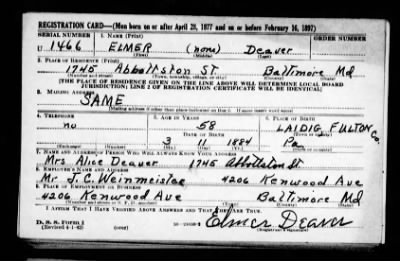 REGISTRATION CARD—(Men born on or after April 28, 1877 and on or before February 16, 1897)
SERIAL NUMBER 1. NAME (Print) ORDER NUMBER
U 1466 ELMER (none) Deaver
(First) (Middle) (Last)
2. PLACE OF RESIDENCE (Print)
1745 Abbottston St Baltimore Md
(Number and street) (Town, township, village, or city) (County) (State)
[THE PLACE OF RESIDENCE GIVEN ON THE LINE ABOVE WILL DETERMINE LOCAL BOARD
JURISDICTION; LINE 2 OF REGISTRATION CERTIFICATE WILL BE IDENTICAL]
3. MAILING ADDRESS
SAME
[Mailing address if other than place indicated on line 2. If same insert word same]
4. TELEPHONE 5. AGE IN YEARS 6. PLACE OF BIRTH
no 58 LAIDIG, FULTON Co.
DATE OF BIRTH
3 11 1884 Pa
7. NAME AND ADDRESS OF PERSON WHO WILL ALWAYS KNOW YOUR ADDRESS
Mrs Alice Deaver 1745 Abbottston St
8. EMPLOYER'S NAME AND ADDRESS
Mr. J. C. Weinmeister 4206 Kenwood Ave
9. PLACE OF EMPLOYMENT OR BUSINESS
4206 Kenwood Ave Baltimore Md
(Number and street or R. F. D. number) (Town) (County) (State)
I AFFIRM THAT I HAVE VERIFIED ABOVE ANSWERS AND THAT THEY ARE TRUE.
D. S. S. Form 1
(Revised 4-1-42) (over) Elmer Deaver
(Registrant's signature)